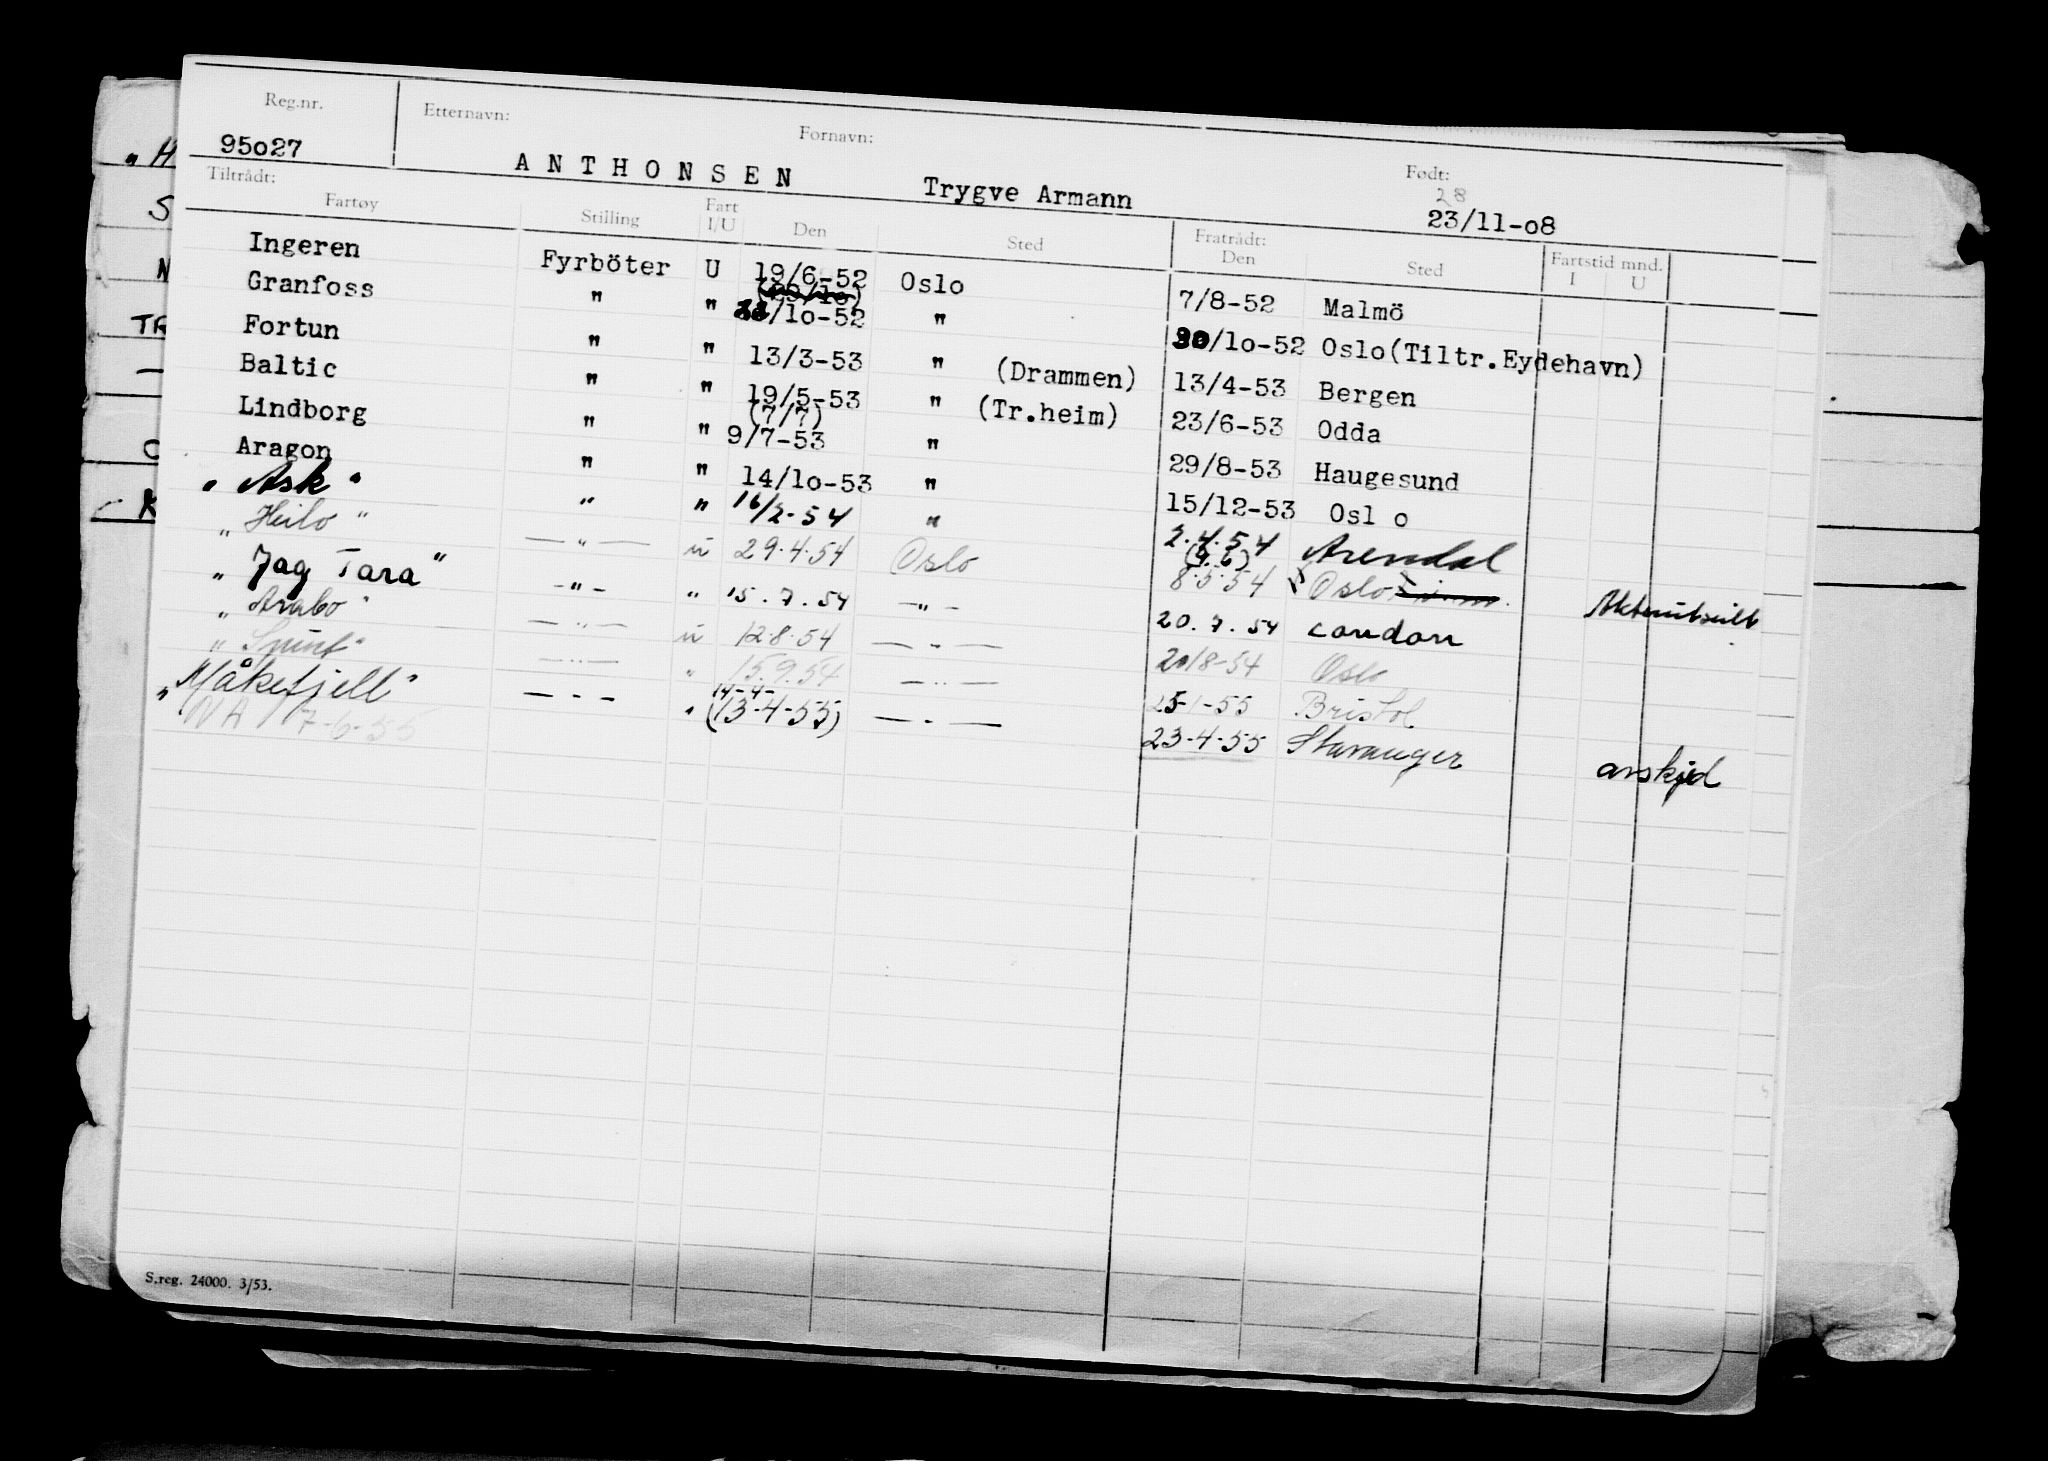 Reg.nr. Etternavn: Fornavn: Født:
95o27 ANTHONSEN Trygve Armann 28 23/11-o8
Tiltrådt: Fratrådt:
Fartøy Stilling Fart I/U Den Sted Den Sted Fartstid mnd. I U
Ingeren Fyrböter U 19/6-52 Oslo 7/8-52 Malmö
Granfoss " " (23/10) /lo-52 " 30/lo-52 Oslo(Tiltr.Eydehavn)
Fortun " " 13/3-53 " (Drammen) 13/4-53 Bergen
Baltic " " 19/5-53 " (Tr.heim) 23/6-53 Odda
Lindborg " " (7/7) 9/7-53 " 29/8-53 Haugesund
Aragon " " 14/lo-53 " 15/12-53 Osl o
"Ask" " " 16/2-54 " 2.4.54 Arendal
"Heilo" — " — u 29.4.54 Oslo (4.6) 8.5.54 Oslo
"Jag Tara" - " - " 15.7.54 — " — 20.7.54 London
"Arabo" — " — u 12.8.54 — " — 20/8-54 Oslo
"Spurt" — " — " 15.9.54 — " — 25-1-55 Bristol
"Måkefjell" - " - " 14-4- (13-4-55) — " — 23-4-55 Stavanger avskjed
NA 17-6-55
S.reg. 24000. 3/53.
"H
S
N
TR
—
O
- K